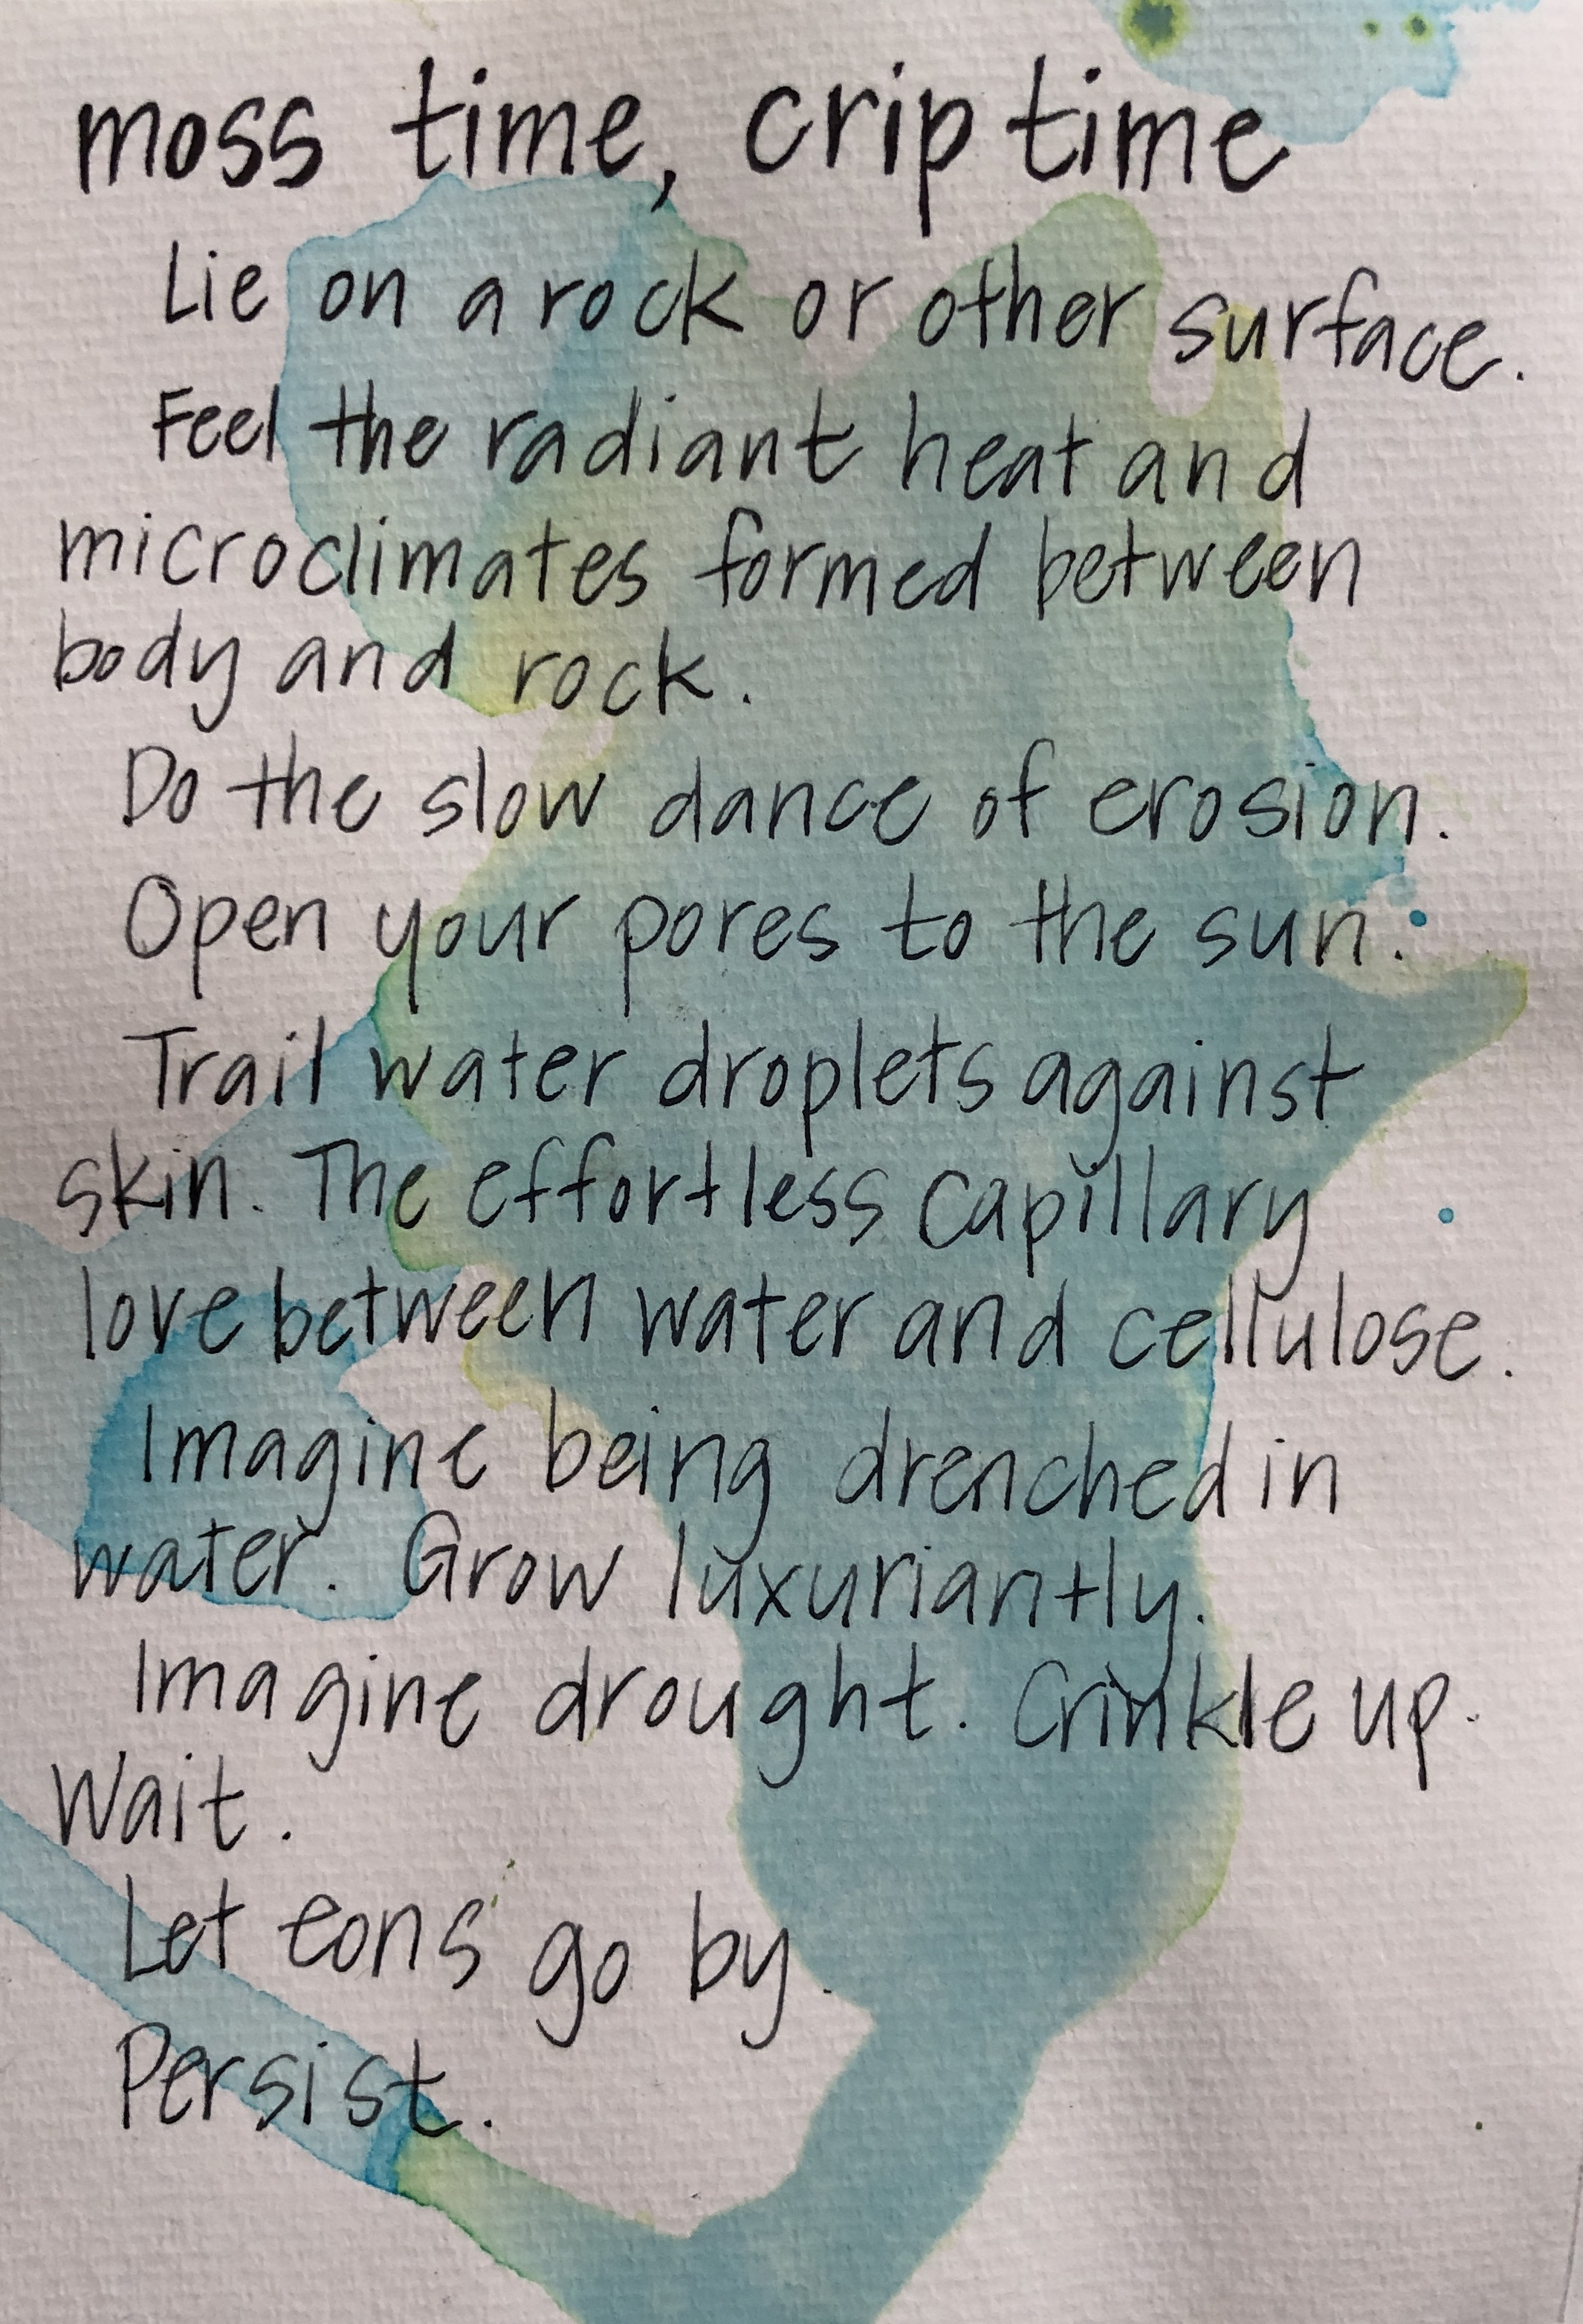 moss time, crip time
Lie on a rock or other surface.
Feel the radiant heat and
microclimates formed between
body and rock.
Do the slow dance of erosion.
Open your pores to the sun.
Trail water droplets against
skin. The effortless capillary
love between water and cellulose.
Imagine being drenched in
water. Grow luxuriantly.
Imagine drought. Crinkle up.
Wait.
Let eons go by.
Persist.